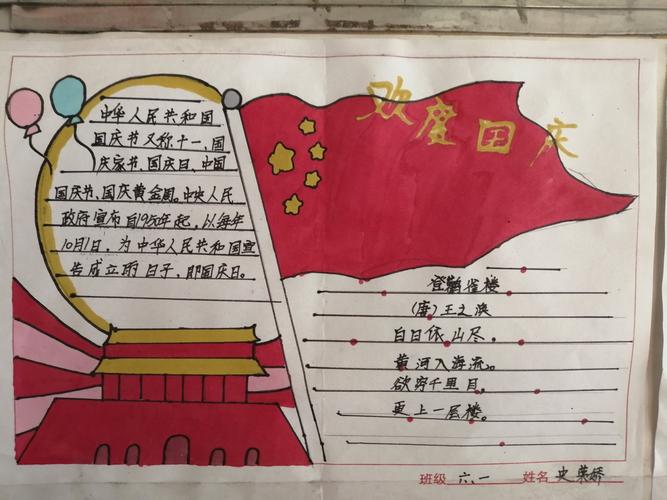 欢度国庆
中华人民共和国
国庆书又称十一、国
庆家书、国庆日、中国
国庆书、国庆黄金周。中央人民
政府宣布自1950年起，以每年
10月1日，为中华人民共和国宣
告成立的日子，即国庆日。
登鹳雀楼
(唐)王之涣
白日依山尽。
黄河入海流。
欲穷千里目，
更上一层楼。
班级 六、一 姓名 史荣娇